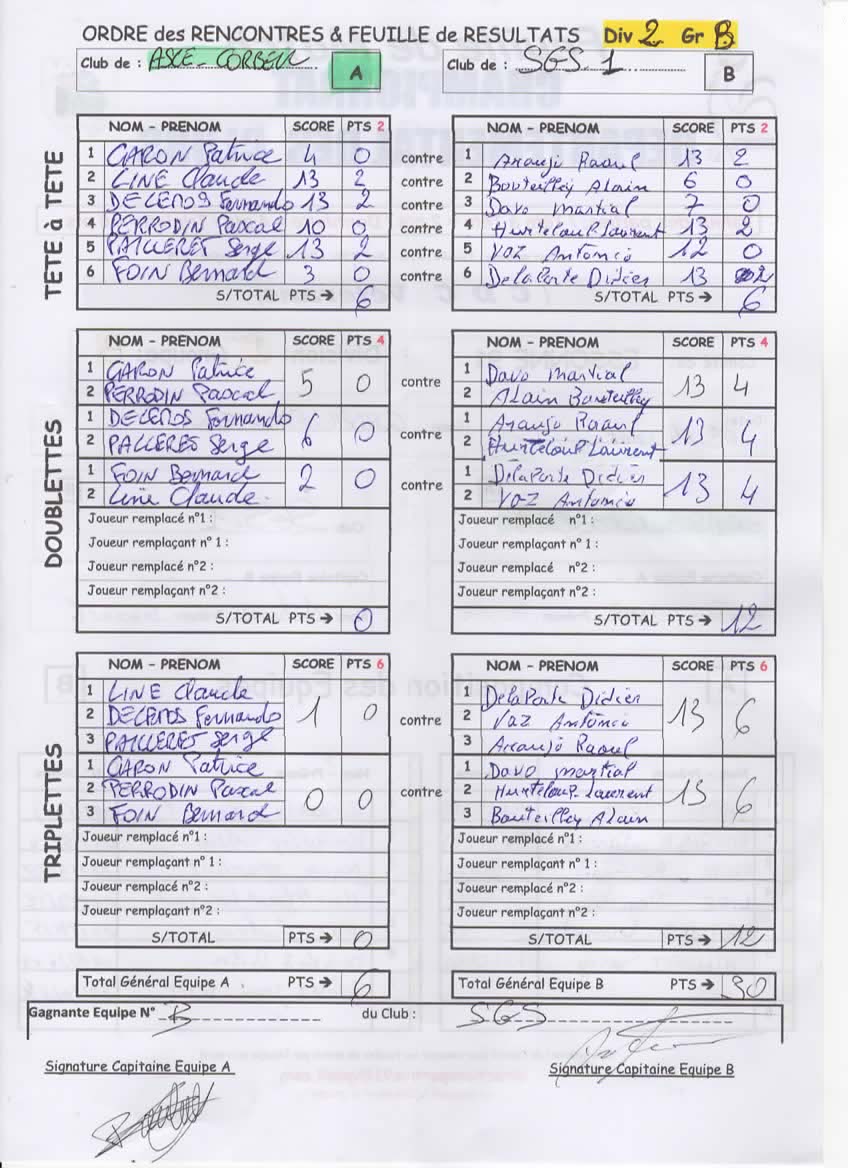 ORDRE des RENCONTRES & FEUILLE de RESULTATS Div 2 Gr B
Club de : ASCE- CORBEIL A Club de : SGS 1 B
TETE à TETE
NOM - PRENOM SCORE PTS 2 NOM - PRENOM SCORE PTS 2
1 CARON Patrice 4 0 contre 1 Araujo Raoul 13 2
2 LINE Claude 13 2 contre 2 Bouteilley Alain 6 0
3 DECEMOS Fernando 13 2 contre 3 Davo martial 7 0
4 PERRODIN Pascal 10 0 contre 4 Hurteloup Laurent 13 2
5 PAILLERET Serge 13 2 contre 5 VOZ Antonio 12 0
6 FOIN Bernard 3 0 contre 6 DelaPorte Didier 13 2
S/TOTAL PTS → 6 S/TOTAL PTS → 6
DOUBLETTES
NOM - PRENOM SCORE PTS 4 NOM - PRENOM SCORE PTS 4
1 CARON Patrice 1 Davo martial
2 PERRODIN Pascal 5 0 contre 2 Alain Bouteilley 13 4
1 DECEMOS Fernando 1 Araujo Raoul
2 PALLERES Serge 6 0 contre 2 Hurteloup Laurent 13 4
1 FOIN Bernard 1 DelaPorte Didier
2 Line Claude 2 0 contre 2 VOZ Antonio 13 4
Joueur remplacé n°1 : Joueur remplacé n°1 :
Joueur remplaçant n° 1 : Joueur remplaçant n° 1 :
Joueur remplacé n°2 : Joueur remplacé n°2 :
Joueur remplaçant n°2 : Joueur remplaçant n°2 :
S/TOTAL PTS → 0 S/TOTAL PTS → 12
TRIPLETTES
NOM - PRENOM SCORE PTS 6 NOM - PRENOM SCORE PTS 6
1 LINE Claude 1 DelaPorte Didier
2 DECEMOS Fernando 1 0 contre 2 VOZ Antonio 13 6
3 PAILLERET Serge 3 Araujo Raoul
1 CARON Patrice 1 Davo martial
2 PERRODIN Pascal 0 0 contre 2 Hurteloup Laurent 13 6
3 FOIN Bernard 3 Bouteilley Alain
Joueur remplacé n°1 : Joueur remplacé n°1 :
Joueur remplaçant n° 1 : Joueur remplaçant n° 1 :
Joueur remplacé n°2 : Joueur remplacé n°2 :
Joueur remplaçant n°2 : Joueur remplaçant n°2 :
S/TOTAL PTS → 0 S/TOTAL PTS → 12
Total Général Equipe A PTS → 6 Total Général Equipe B PTS → 30
Gagnante Equipe N° B du Club : SGS
Signature Capitaine Equipe A Signature Capitaine Equipe B